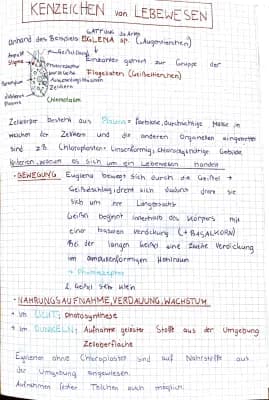 KENZEICHEN von LEBEWESEN
GATTUNG
Anhand des Beispiels EGLENA sp. (Augentierchen)
Einzeller gehört zur Gruppe der
Flagellaten (Geißeltierchen)
Stigma
Zellkern
Chloroplasten
Zellkörper besteht aus Plasma = farblose, durchsichtige Masse in
welcher der Zellkern und die anderen Organellen eingebettet
sind z.B. Chloroplasten - Linsenförmig, chlorophyllhaltige Gebilde
Kriterien, warum es sich um ein Lebewesen handelt
• BEWEGUNG Euglena bewegt sich durch die Geißel →
Geißelschlag dreht sich dadurch dreht sie
sich um ihre Längsachse
Geißel beginnt innerhalb des Körpers mit
einer basalen Verdickung (→ BASALKORN)
Bei der langen Geißel eine zweite Verdickung
im ampullenförmigen Hohlraum
→ Photorezeptor
2. Geißel sehr klein
• NAHRUNGSAUFNAHME, VERDAUUNG, WACHSTUM
• Im LICHT: Photosynthese
• im DUNKELN: Aufnahme gelöster Stoffe aus der Umgebung
Zelloberfläche
Euglenen ohne Chloroplasten sind auf Nährstoffe aus
der Umgebung angewiesen.
Aufnahmen fester Teilchen auch möglich.